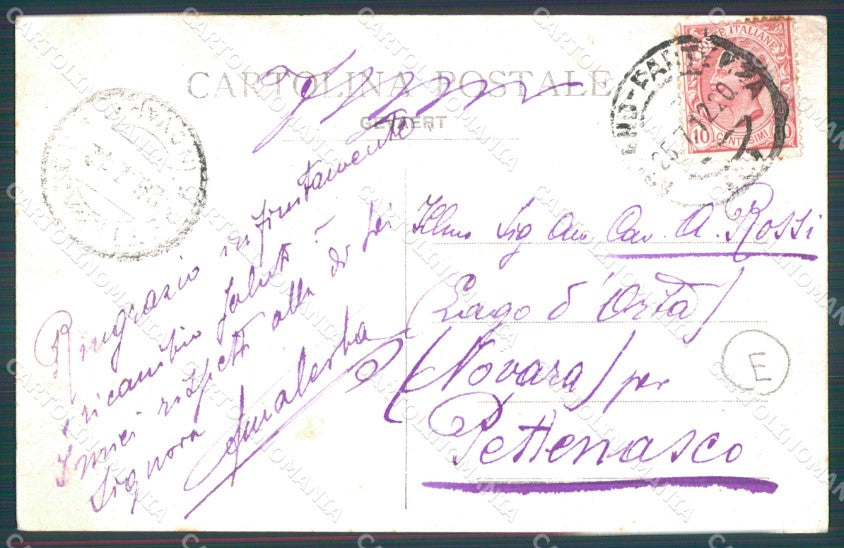 CARTOLINA POSTALE
GEVAERT
POSTE ITALIANE
10 CENTESIMI 10
12 20
Ringrazio infinitamente
e ricambio saluti -
I miei rispetti alla di Lei
Signora
Illmo Sig Avv Cav. A. Rossi
(Lago d'Orta)
(Novara) per
Pettenasco
E
CARTOLINOMANIA